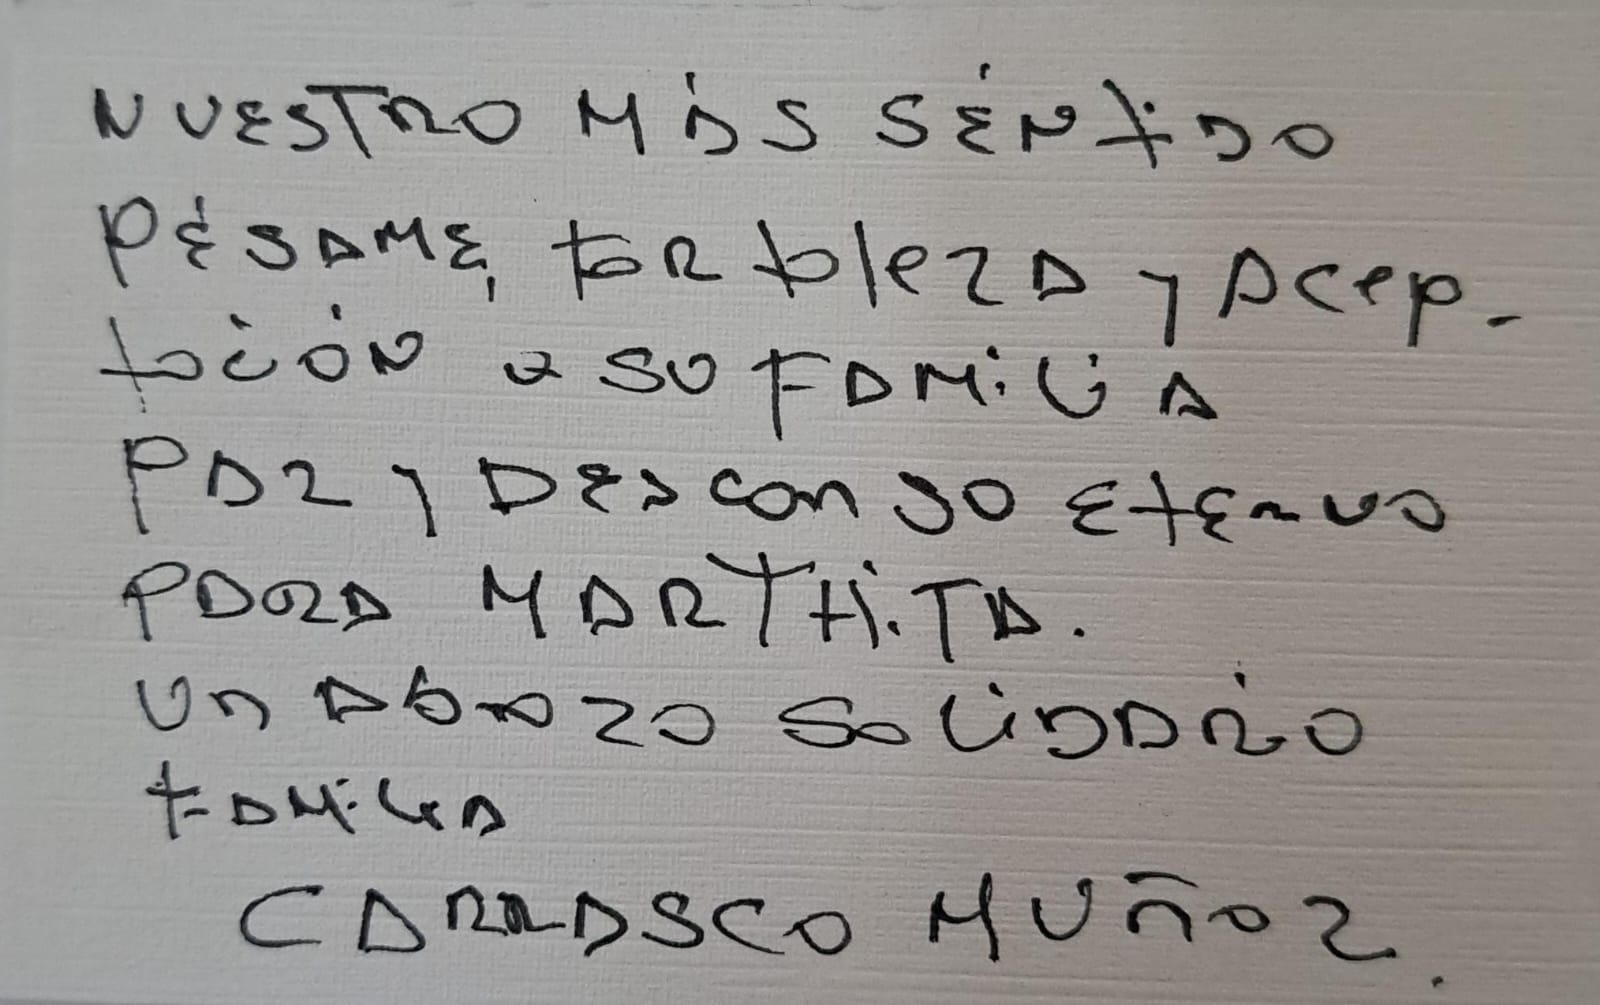 NUESTRO MÁS SÉNTIDO
PÉSAME, FORTALEZA Y ACEP-
TACIÓN A SU FAMILIA
PAZ Y DESCANSO ETERNO
PARA MARTHITA.
UN ABRAZO SOLIDARIO
FAMILIA
CARRASCO MUÑOZ.